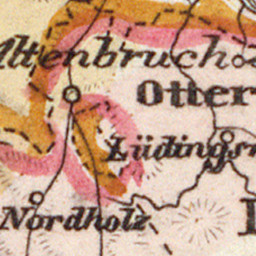 Altenbruch
Otter
Lüdings
Nordholz